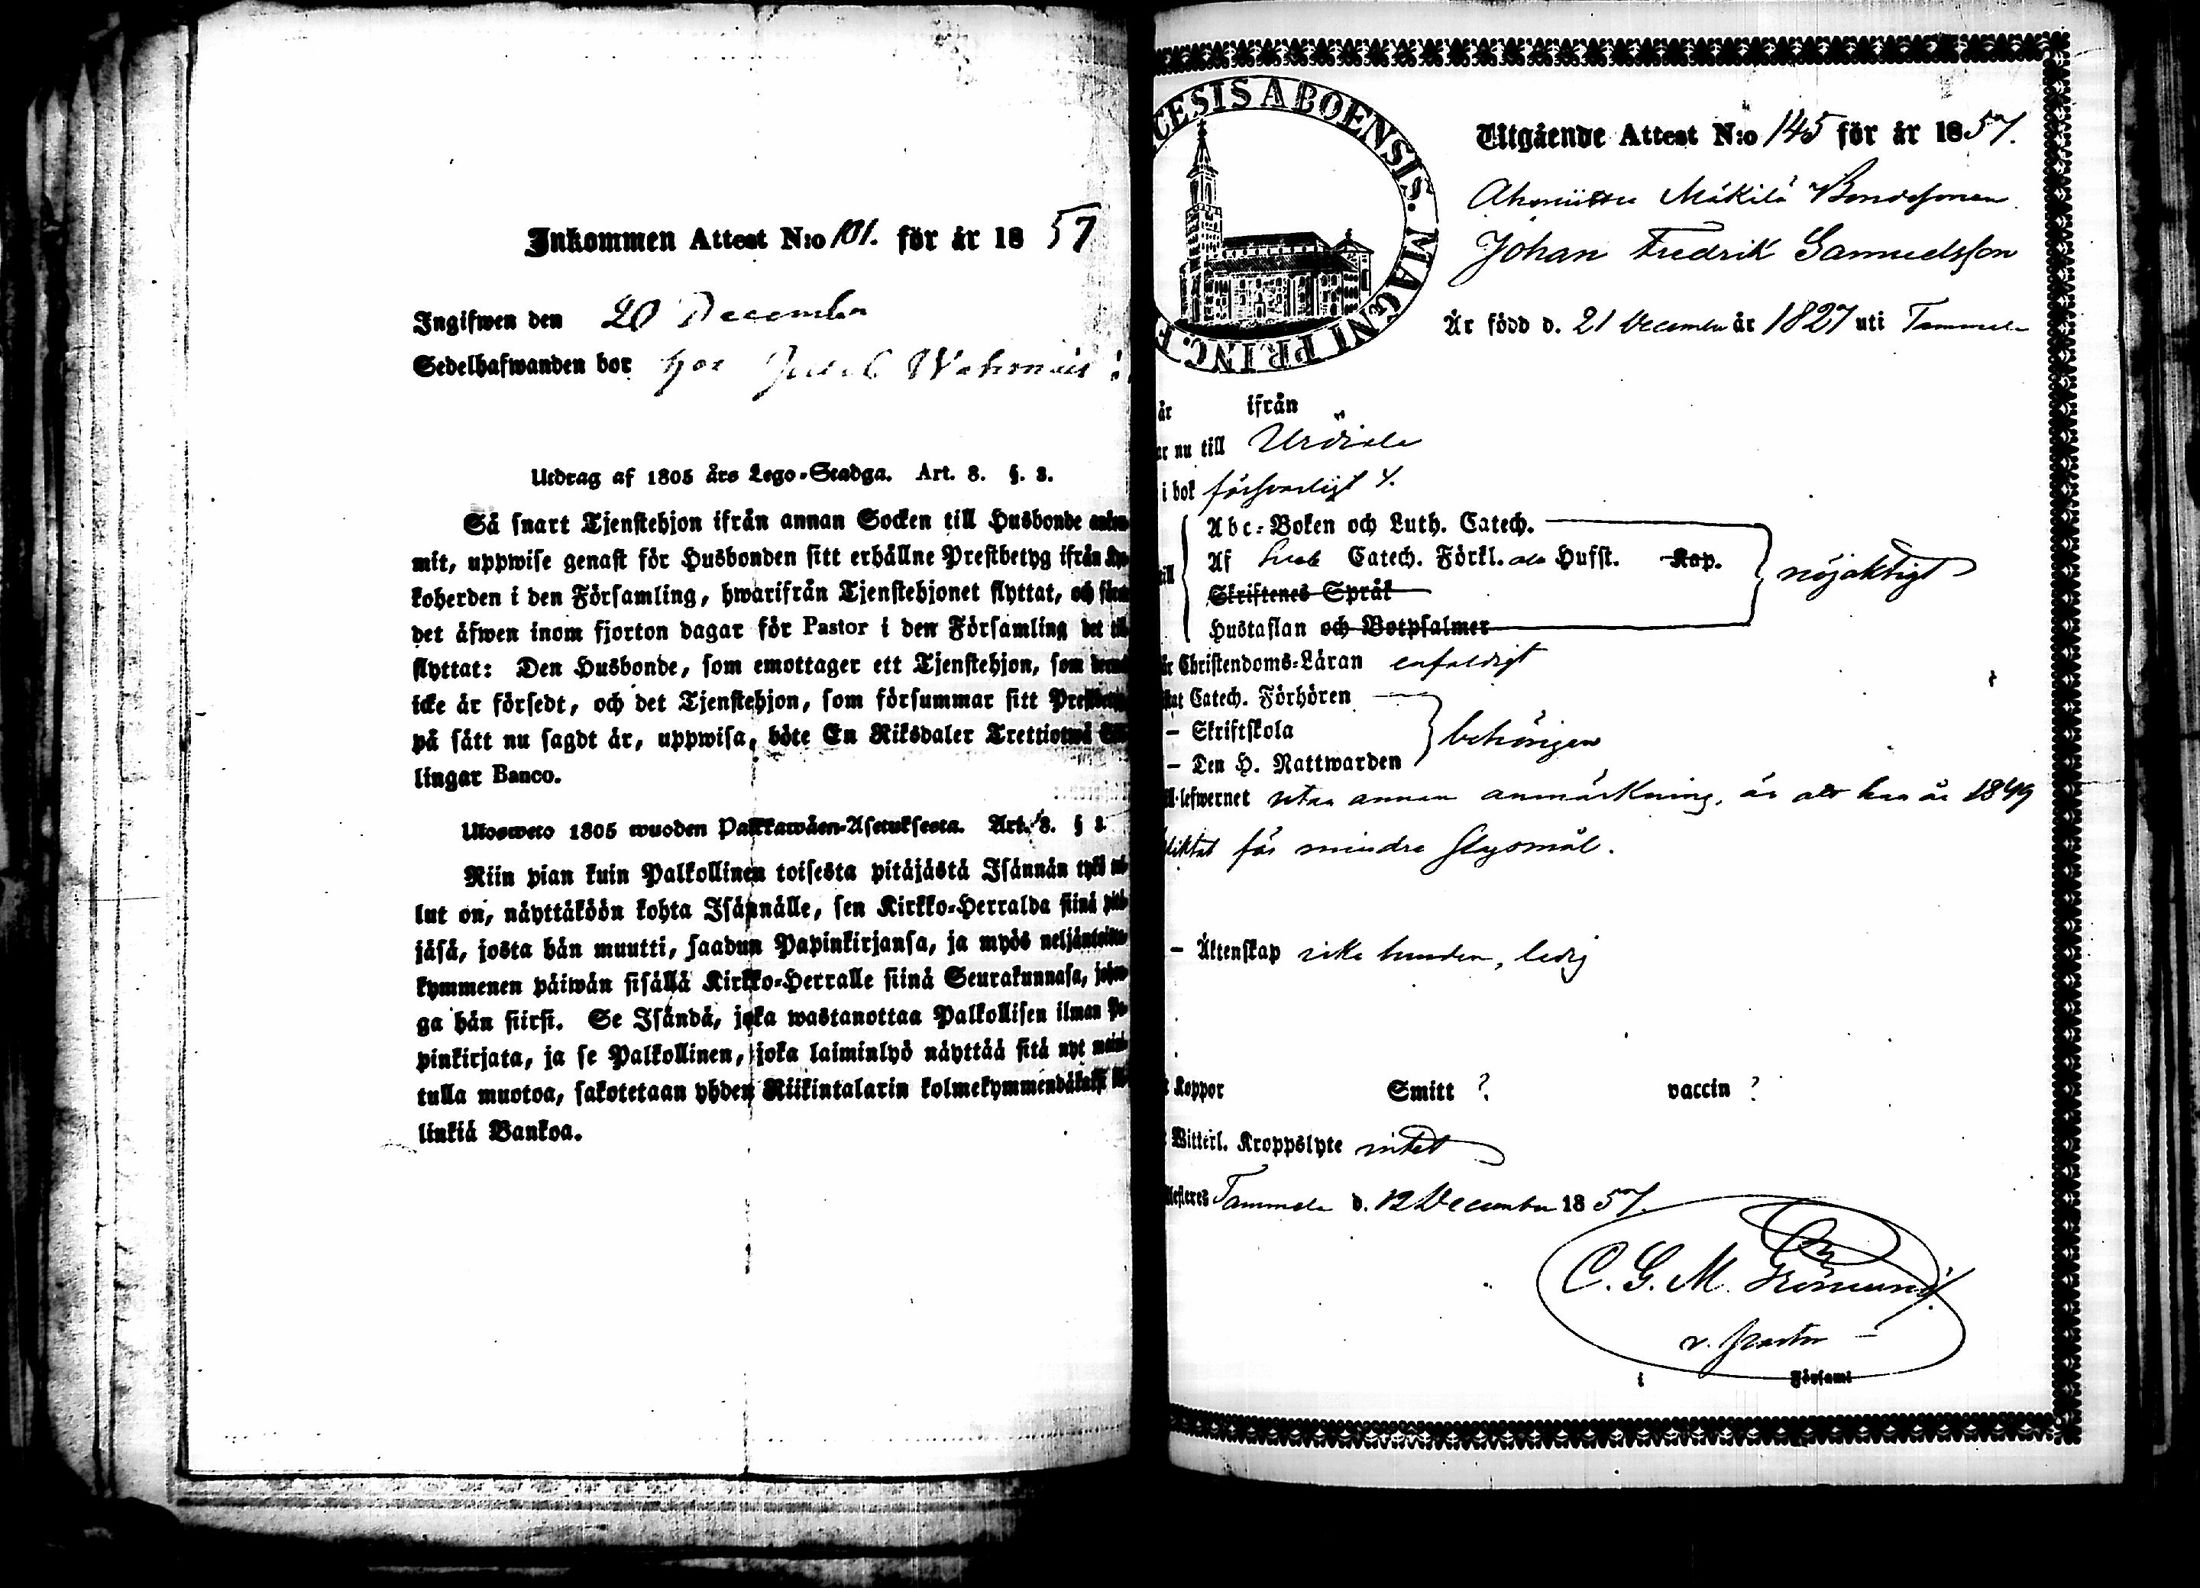 Inkommen Attest N:o 101. för år 1857
Ingifwen den 20 December
Sedelhafwanden bor hos
Utdrag af 1805 års Lego-Stadga. Art. 8. §. 3.
Så snart Tjenstehjon ifrån annan Socken till Husbonde
mit, uppwise genast för Husbonden sitt erhållne Prestbetyg ifrån
koherden i den Församling, hwarifrån Tjenstehjonet flyttat, och
det äfwen inom fjorton dagar för Pastor i den Församling det
flyttat: Den Husbonde, som emottager ett Tjenstehjon, som
icke är försedt, och det Tjenstehjon, som försummar sitt
på sätt nu sagdt är, uppwisa, böte En Riksdaler Trettiotwå
lingar Banco.
Ulosweto 1805 wuoden Palkkawäen-Asetuksesta. Art. 8. §
Niin pian kuin Palkollinen toisesta pitäjästä Isännän tykö
lut on, näyttäköön kohta Isännälle, sen Kirkko-Herralda siinä
jäsä, josta hän muutti, saadun Papinkirjansa, ja myös
kymmenen päiwän sisällä Kirkko-Herralle siinä Seurakunnasa,
ga hän siirsi. Se Isändä, joka wastanottaa Palkollisen ilman
pinkirjata, ja se Palkollinen, joka laiminlyö näyttää sitä nyt
tulla muotoa, sakotetaan yhden Riikintalarin kolmekymmendäkaksi
linkiä Bankoa.
CESIS ABOENSIS. MAGNI PRINC. F
Utgående Attest N:o 145 för år 1857.
Mäkilä Bondesonen
Johan Fredrik Samuelsson
Är född d. 21 December år 1827 uti Tammela
är ifrån
ar nu till Urdiala
i bok försvarligt
Abc-Boken och Luth. Catech.
Af Catech. Förkl. Husst. Kap. nöjaktigt
Skriftenes Språk
Hustaflan och Botpsalmer
Christendoms-Läran enfaldigt
Catech. Förhören
– Skriftskola behörigen
– Den H. Nattwarden
lefwernet utan annan anmärkning, än att han år 1849
pliktat för mindre slagsmål.
– Äktenskap icke bunden, ledig
Koppor Smitt ? vaccin ?
Witterl. Kroppslyte intet
Tammela d. 12 December 1857.
C. G. M.
v. Pastor
i Församl